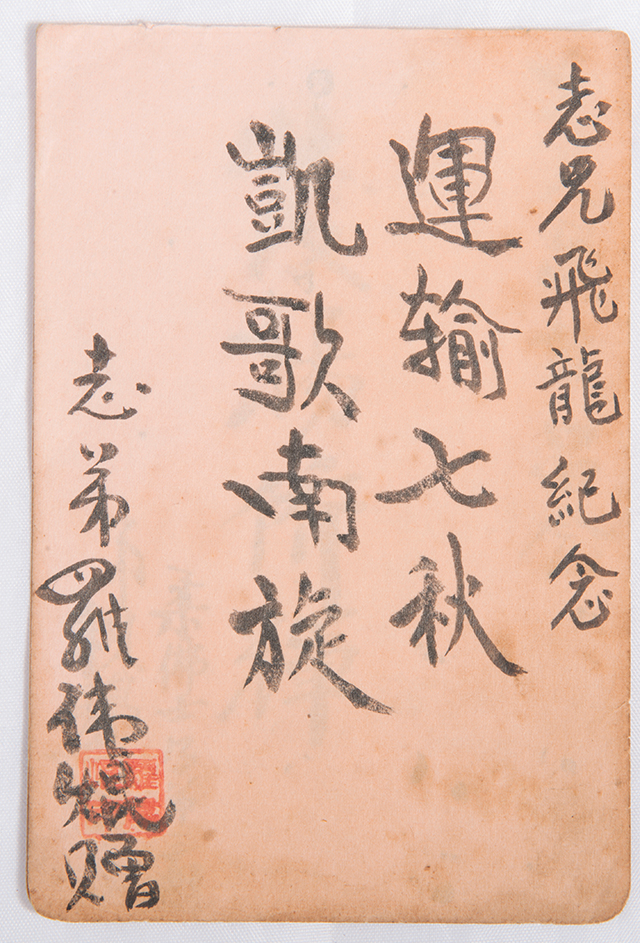 志兄飛龍紀念
運输七秋
凱歌南旋
志弟羅伟焜赠